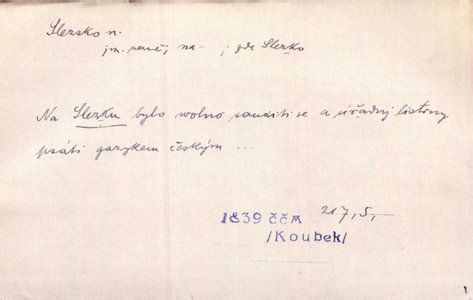 Slezsko n.
jm. země; na- ; zde Slezko
Na Slezku bylo wolno sauditi se a úřadnj listiny
psáti gazykem českým ...
1839 ČČM 217,5,-
/Koubek/